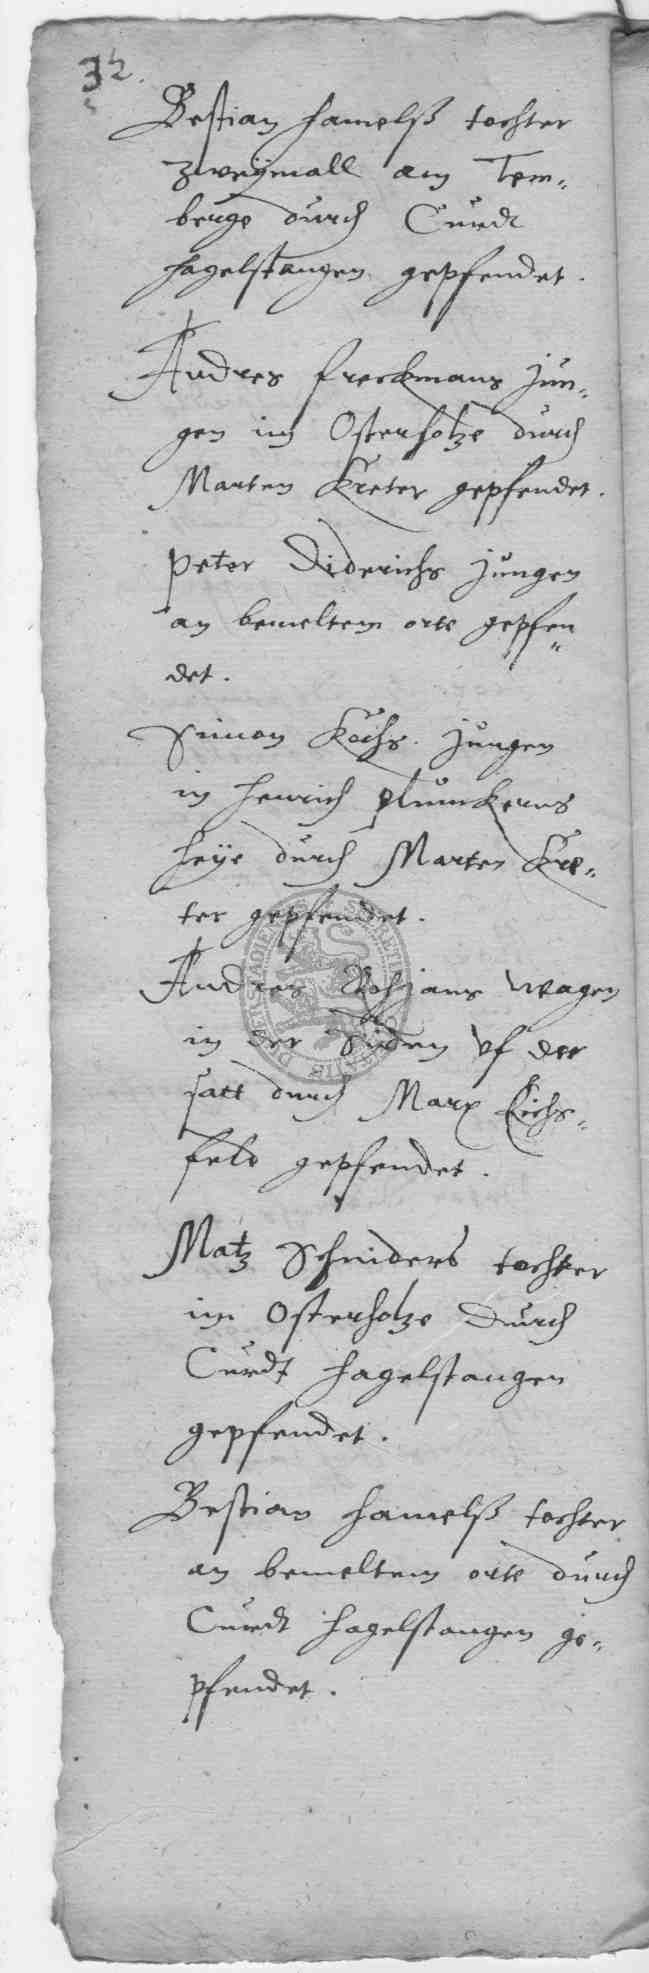 32.
Bestian Hamelß tochter
zweÿmall am Tem-
berge durch Curdt
Hagelstangen gepfendet.
Andres Freckmans jun-
gen im Osterholtze durch
Marten Kreter gepfendet.
Peter Diderichs jungen
an bemeltem orte gepfen
det.
Simon Kochs jungen
in Henrich Plumekens
Heÿe durch Marten Kre-
ter gepfendet.
Andres wagen
in der Süden vf der
satt durch Marx Eichs-
feld gepfendet.
Matz Schniders tochter
im Osterholtze durch
Curdt Hagelstangen
gepfendet.
Bestian Hamelß tochter
an bemeltem orte durch
Curdt Hagelstangen ge-
pfendet.